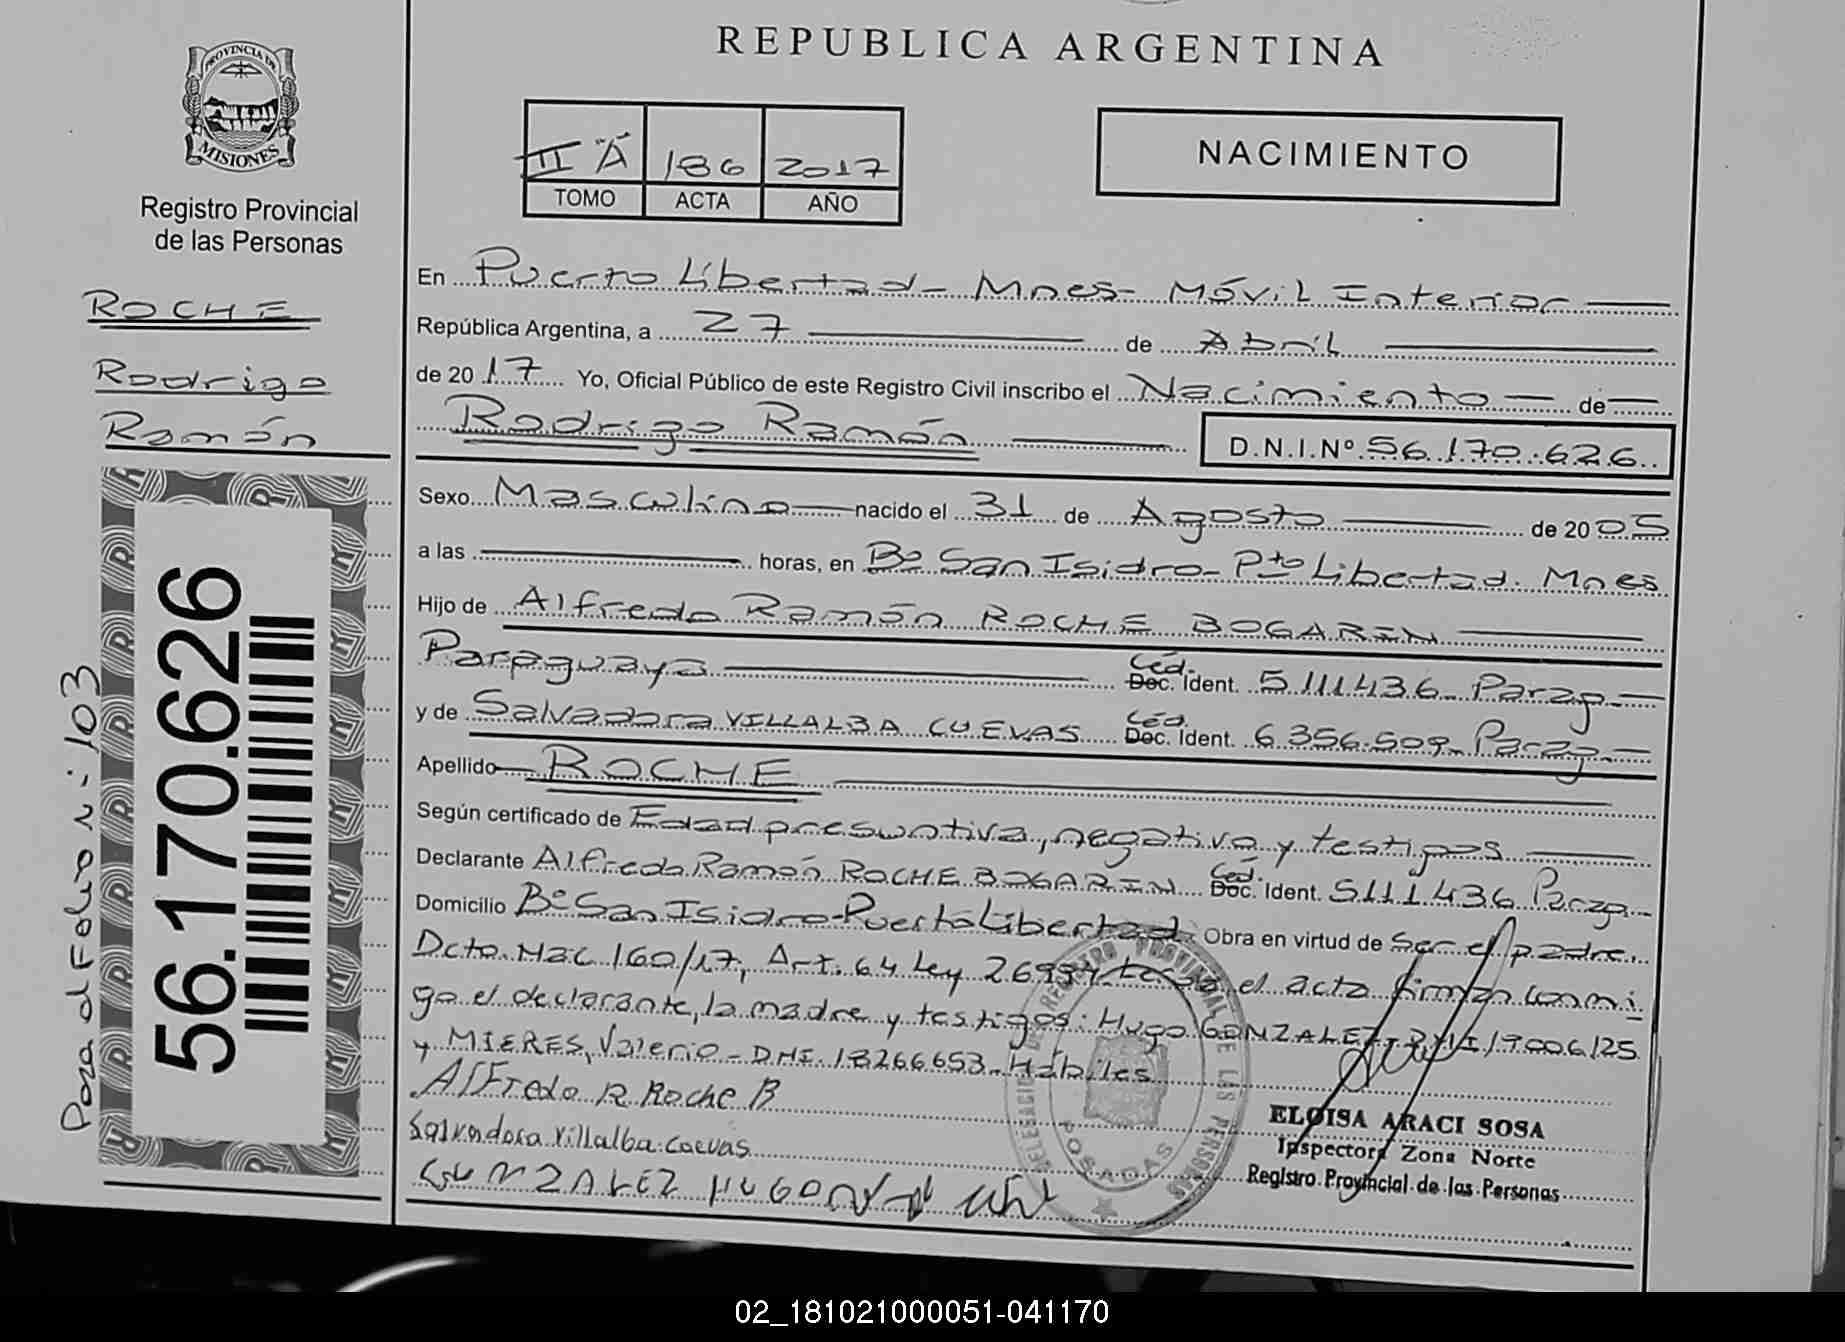 REPUBLICA ARGENTINA
PROVINCIA DE
MISIONES
Registro Provincial
de las Personas
ROCHE
Rodrigo
Ramón
56.170.626
Pasa al Folio N: 103
III "A" 186 2017
TOMO ACTA AÑO
NACIMIENTO
En Puerto Libertad - Mnes - Móvil Interior
República Argentina, a 27 de Abril
de 20 17 Yo, Oficial Público de este Registro Civil inscribo el Nacimiento de
Rodrigo Ramón D.N.I.Nº 56.170.626
Sexo Masculino nacido el 31 de Agosto de 20 05
a las horas, en Bº San Isidro - Pto Libertad. Mnes
Hijo de Alfredo Ramón ROCHE BOGARIN
Paraguaya Céd. Doc. Ident. 5.111.436 Parag.
y de Salvadora VILLALBA CUEVAS Céd. Doc. Ident. 6.356.509 Parag.
Apellido ROCHE
Según certificado de Edad presuntiva, negativa y testigos
Declarante Alfredo Ramón ROCHE BOGARIN Céd. Doc. Ident. 5.111.436 Parag.
Domicilio Bº San Isidro - Puerto Libertad Obra en virtud de Ser el padre.
Dcto. Nac 160/17, Art. 64 Ley 26994 el acta firman conmi
go el declarante, la madre y testigos: Hugo GONZALEZ
y MIERES, Valerio - DNI. 18266653 - Hábiles
Alfredo R Roche B
Salvadora Villalba Cuevas
GONZALEZ HUGO
REGISTRO PROVINCIAL DE LAS PERSONAS
POSADAS
ELOISA ARACI SOSA
Inspectora Zona Norte
Registro Provincial de las Personas
02_181021000051-041170